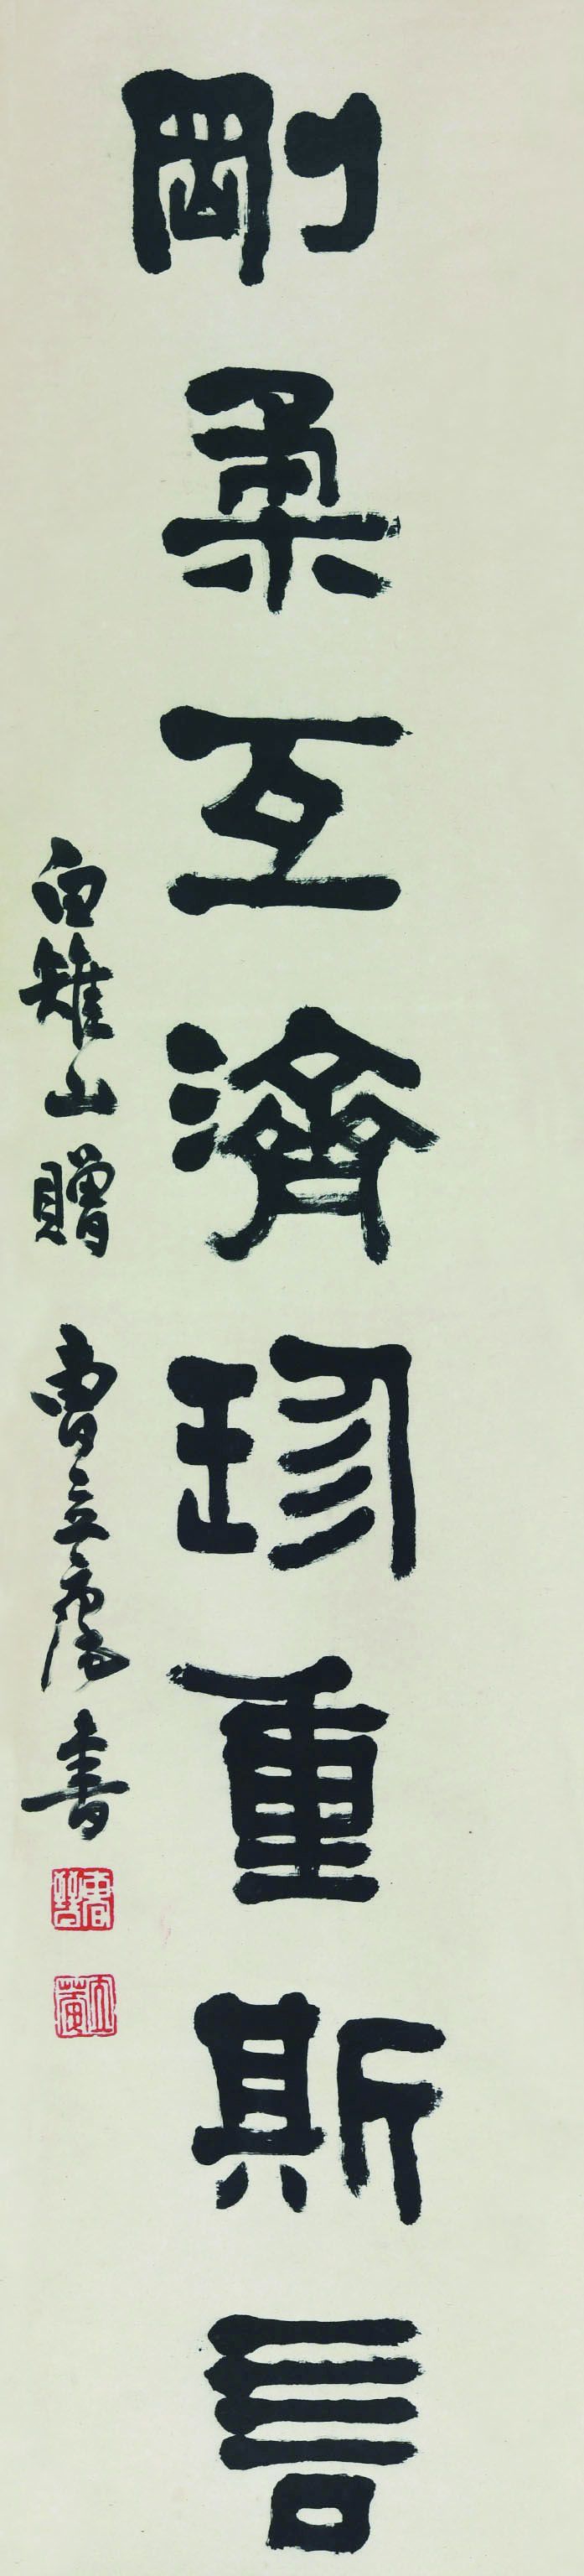 剛柔互濟珍重斯言
白雉山贈 曹立庵書